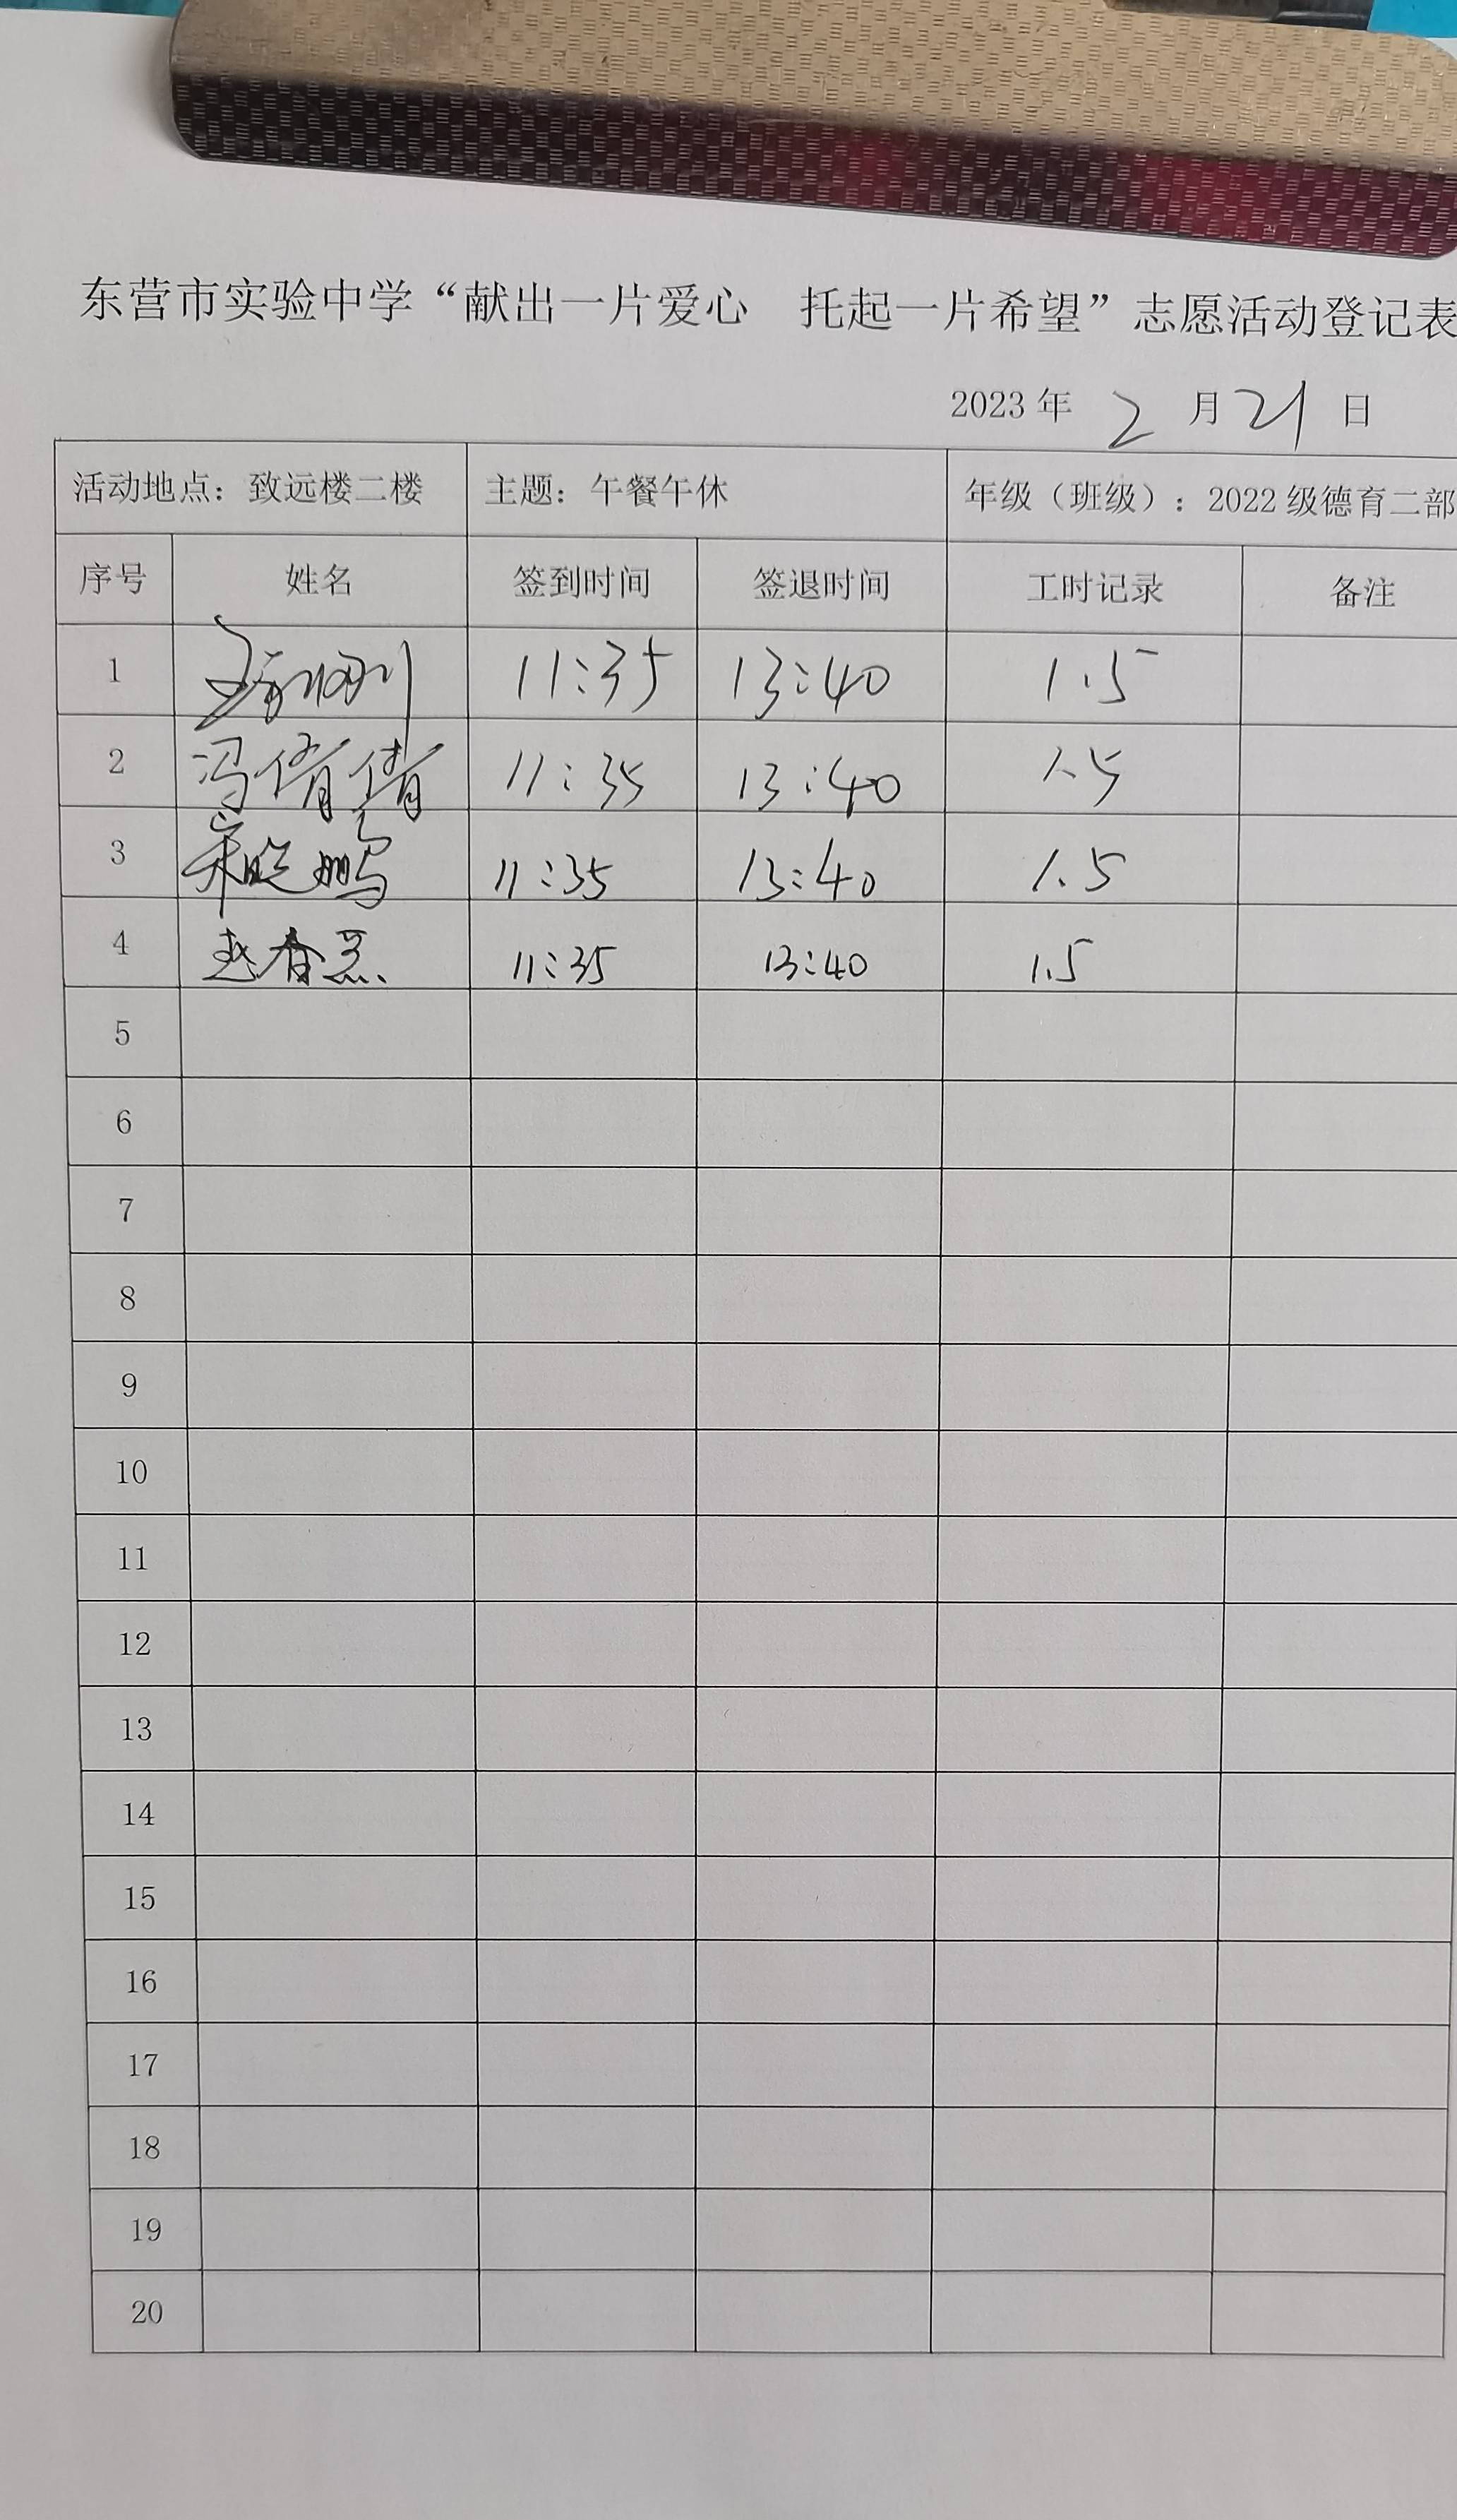 东营市实验中学“献出一片爱心 托起一片希望”志愿活动登记表
2023 年 2 月 21 日
活动地点：致远楼二楼 主题：午餐午休 年级（班级）：2022 级德育二部
序号 姓名 签到时间 签退时间 工时记录 备注
1 11:35 13:40 1.5
2 冯倩倩 11:35 13:40 1.5
3 宋晓鹏 11:35 13:40 1.5
4 11:35 13:40 1.5
5
6
7
8
9
10
11
12
13
14
15
16
17
18
19
20